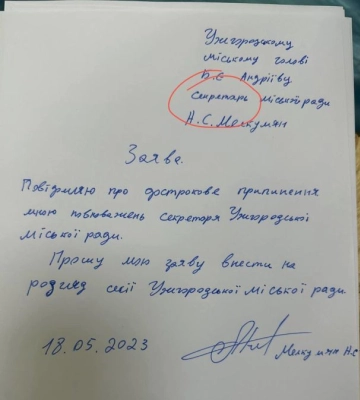 Ужгородському
міському голові
Б.Є Андріїву
секретарь міської ради
Н.С. Мелкумян
Заява.
Повідомляю про дострокове припинення
мною повноважень секретаря Ужгородської
Міської ради.
Прошу мою заяву внести на
розгляд сесії Ужгородської Міської ради
18.05.2023
Мелкумян Н.С